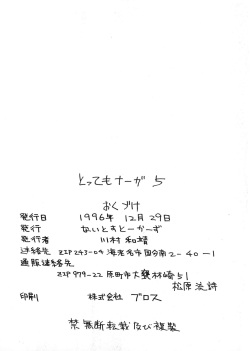 とってもナーガ 5
おくづけ
発行日 1996年 12月 29日
発行 ないとすとーかーず
発行者 川村 和靖
連絡先 〒243-04 海老名市国分南2-40-1
通販連絡先
〒979-22 原町市大甕林崎51
松原 法詩
印刷 株式会社 プロス
禁 無断転載及び複製